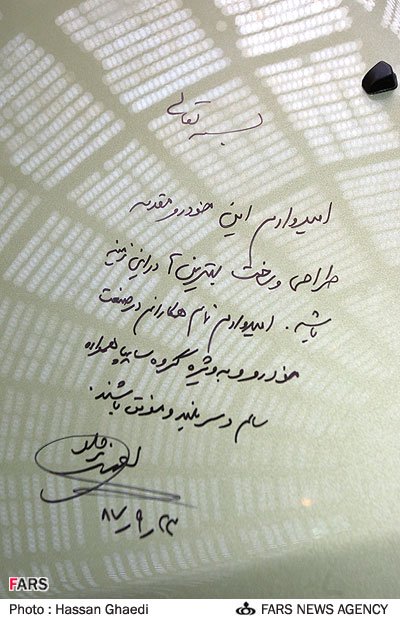 بسمه تعالی
امیدوارم این خودرو مقدمه
طراحی و ساخت بهترین ها در این زمینه
باشد. امیدوارم تمام همکاران در صنعت
خودرو و به ویژه گروه سایپا همواره
سالم و سربلند و موفق باشند.
۸۷٫۹٫۲۳
FARS
Photo : Hassan Ghaedi
FARS NEWS AGENCY